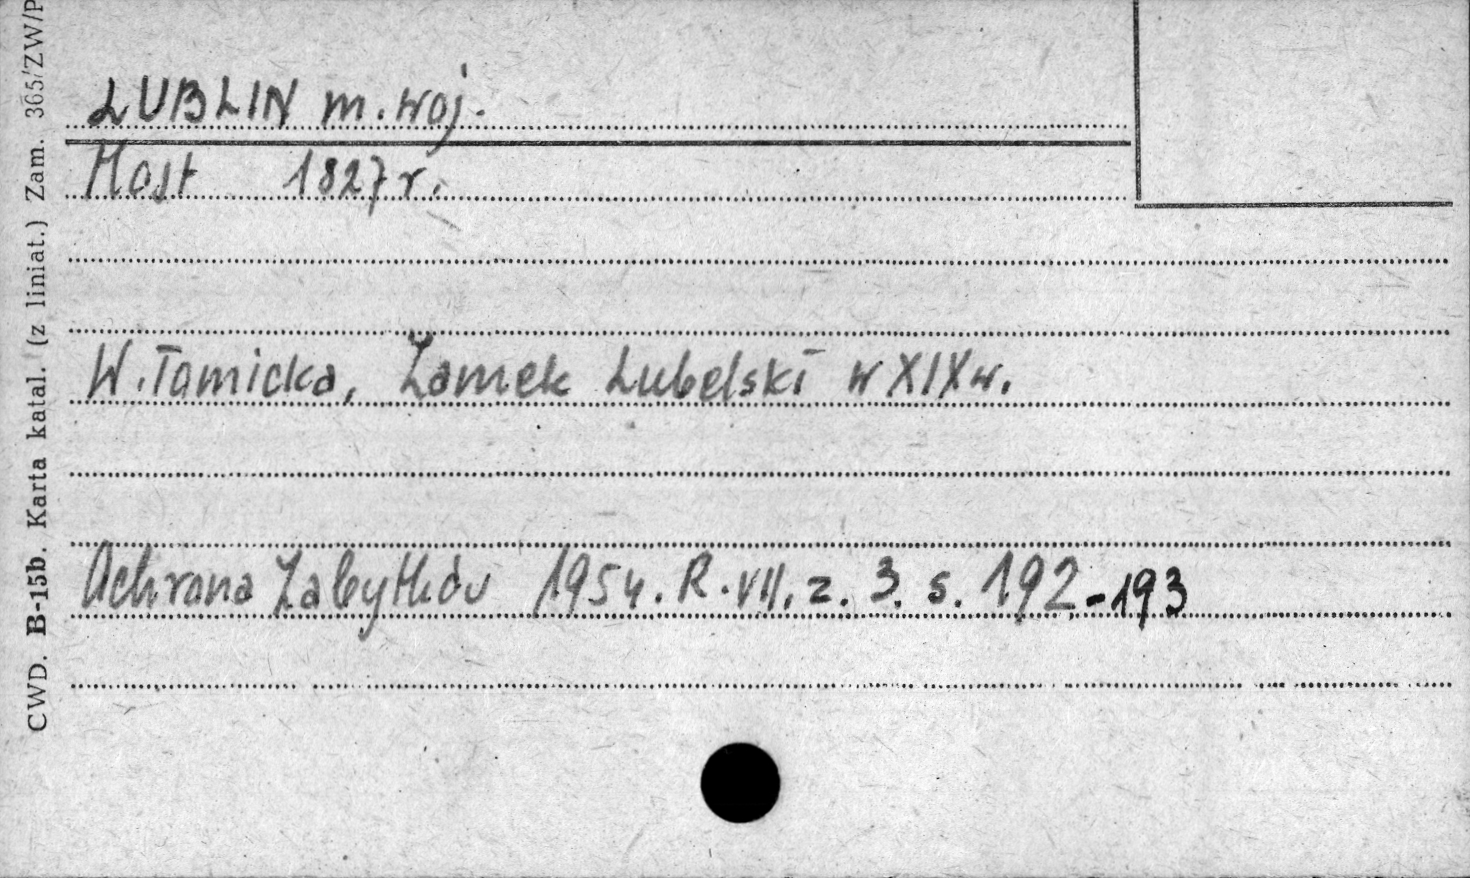 LUBLIN m. woj.
Most 1827 r.
W. Tomicka, Zamek Lubelski w XIX w.
Ochrona Zabytków 1954. R. VII. z. 3. s. 192-193
CWD. B-15b. Karta katal. (z liniat.) Zam. 365/ZW/P